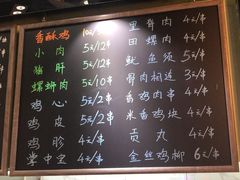 香酥鸡
小肉 5元/12串
猪肝 5元/12串
螺蛳肉 5元/10串
鸡心 5元/2串
鸡皮 5元/2串
鸡胗 4元/串
掌中里 4元/串
里脊肉 4元/串
田螺肉 4元/串
鱿鱼须 5元/串
骨肉相连 3元/串
香鸡肉串 4元/串
米香鸡块 4元/串
贡丸 4元/串
金丝鸡柳 6元/串